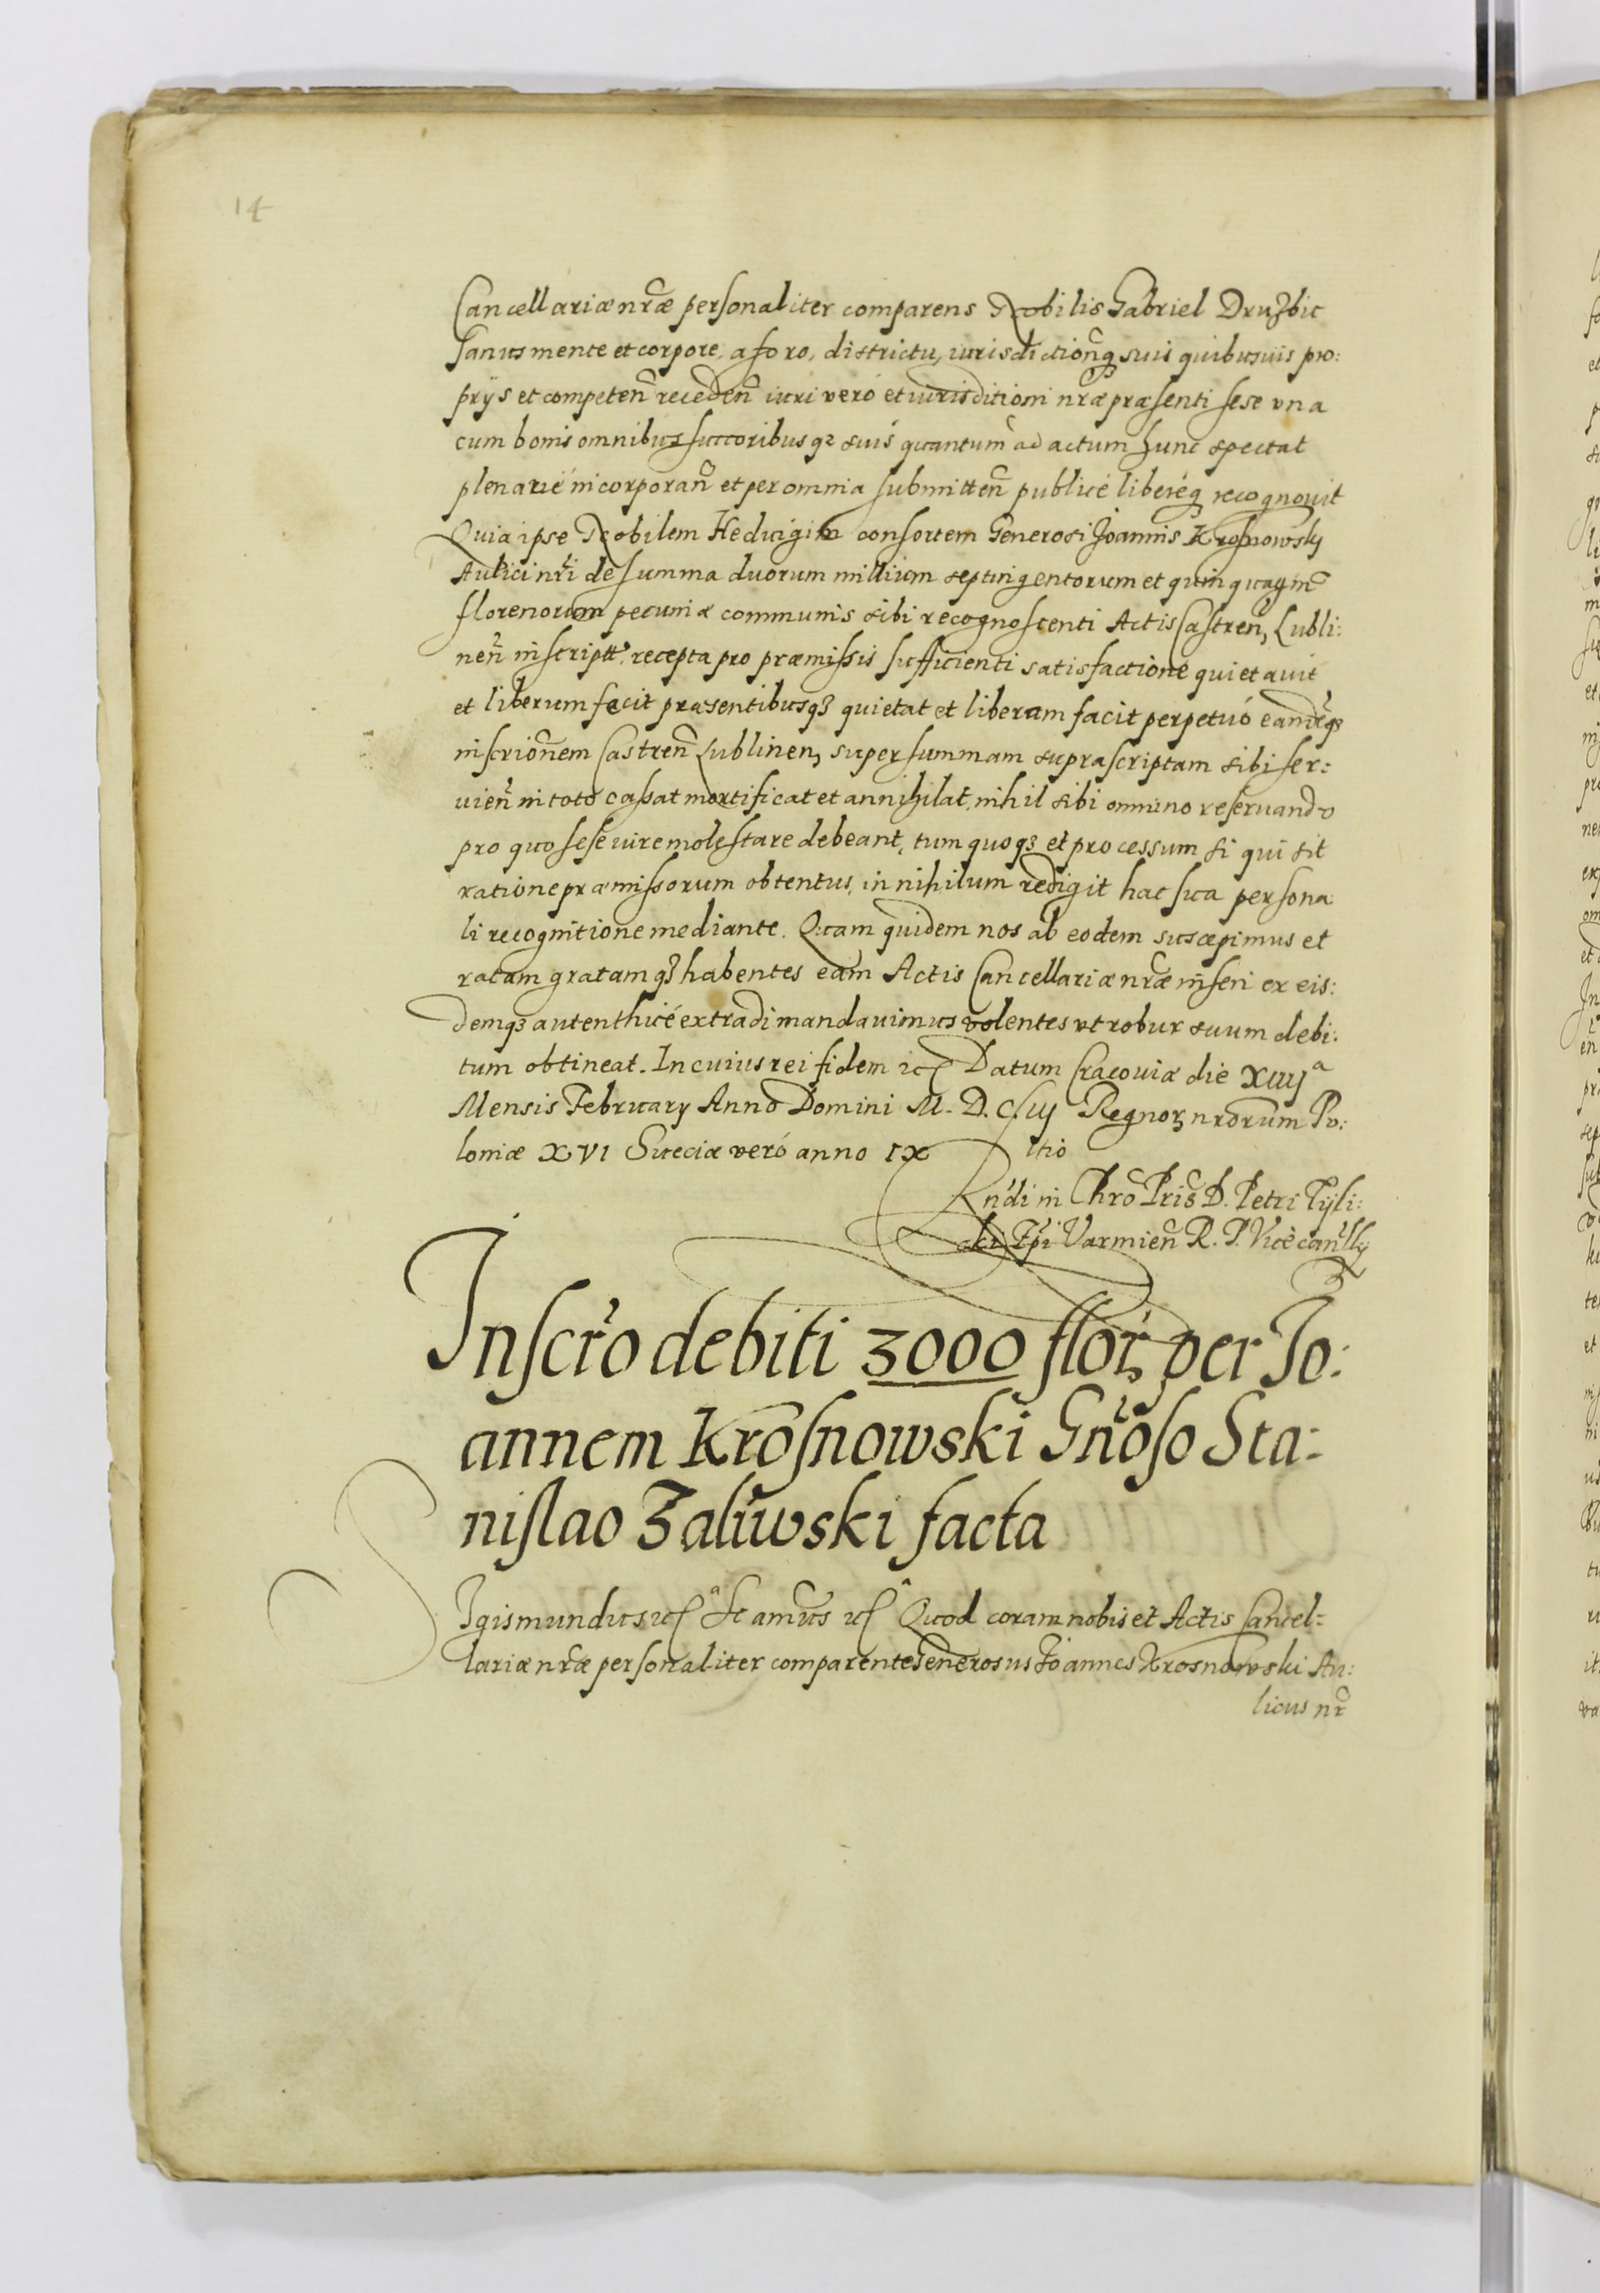 14
Cancellariæ nr̃æ personaliter comparens Nobilis Gabriel Druzbic
sanus mente et corpore, a foro, districtu, iurisdictionẽq suis quibusuis pro:
prijs et competeñ recedeñ iuri verò et iurisditioni nr̃æ præsenti sese vna
cum bonis omnibus succoribusq suis quantum ad actum hunc spectat
plenariè incorporañ et per omnia submitteñ publicè liberéq recognouit
Quia ipse Nobilem Hedicigim consortem Generosi Joannis Krosnowsky
Aulici nr̃i de summa duorum millium septingentorum et quinquagin̄
florenorum pecuniæ communis sibi recognoscenti Actis Castreñ, Lubli:
neñ inscriptt. recepta pro præmissis sufficienti satisfactione quietauit
et liberum fecit præsentibusq quietat et liberam facit perpetuó eandẽq
inscrioñem Castreñ Lublinen, super summam suprascriptam sibi ser:
uieñ in toto cassat mortificat et annihilat, nihil sibi omnino reseruando
pro quo sese iure molestare debeant, tum quoq et processum si qui sit
ratione præmissorum obtentus, in nihilum redigit hac sua persona
li recognitione mediante. Quam quidem nos ab eodem suscepimus et
ratam gratamq habentes eam Actis Cancellariæ nr̃æ inseri ex eis:
demq autenthicé extradi mandauimus volentes vt robur suum debi:
tum obtineat. In cuius rei fidem etc Datum Cracouiæ die XIIIJ a
Mensis Februarij Anno Domini M. D. CIIIJ Regnor, nrõrum Po:
loniæ XVI Sueciæ veró anno IX
itio
Rñdi in Chrõ Pris̃ D. Petri Tyli:
cki Ep̃i Varmieñ R. P. Vicecanc̃llij
Inscr̃o debiti 3000 flor, per Jo:
annem Krosnowski Gñoso Sta:
nislao Zaluwski facta
Sigismundus etc a St amus etc a Quod coram nobis et Actis Cancel=
lariæ nr̃æ personaliter comparente Generosus Joannes Krosnowski Au:
licus nr̃